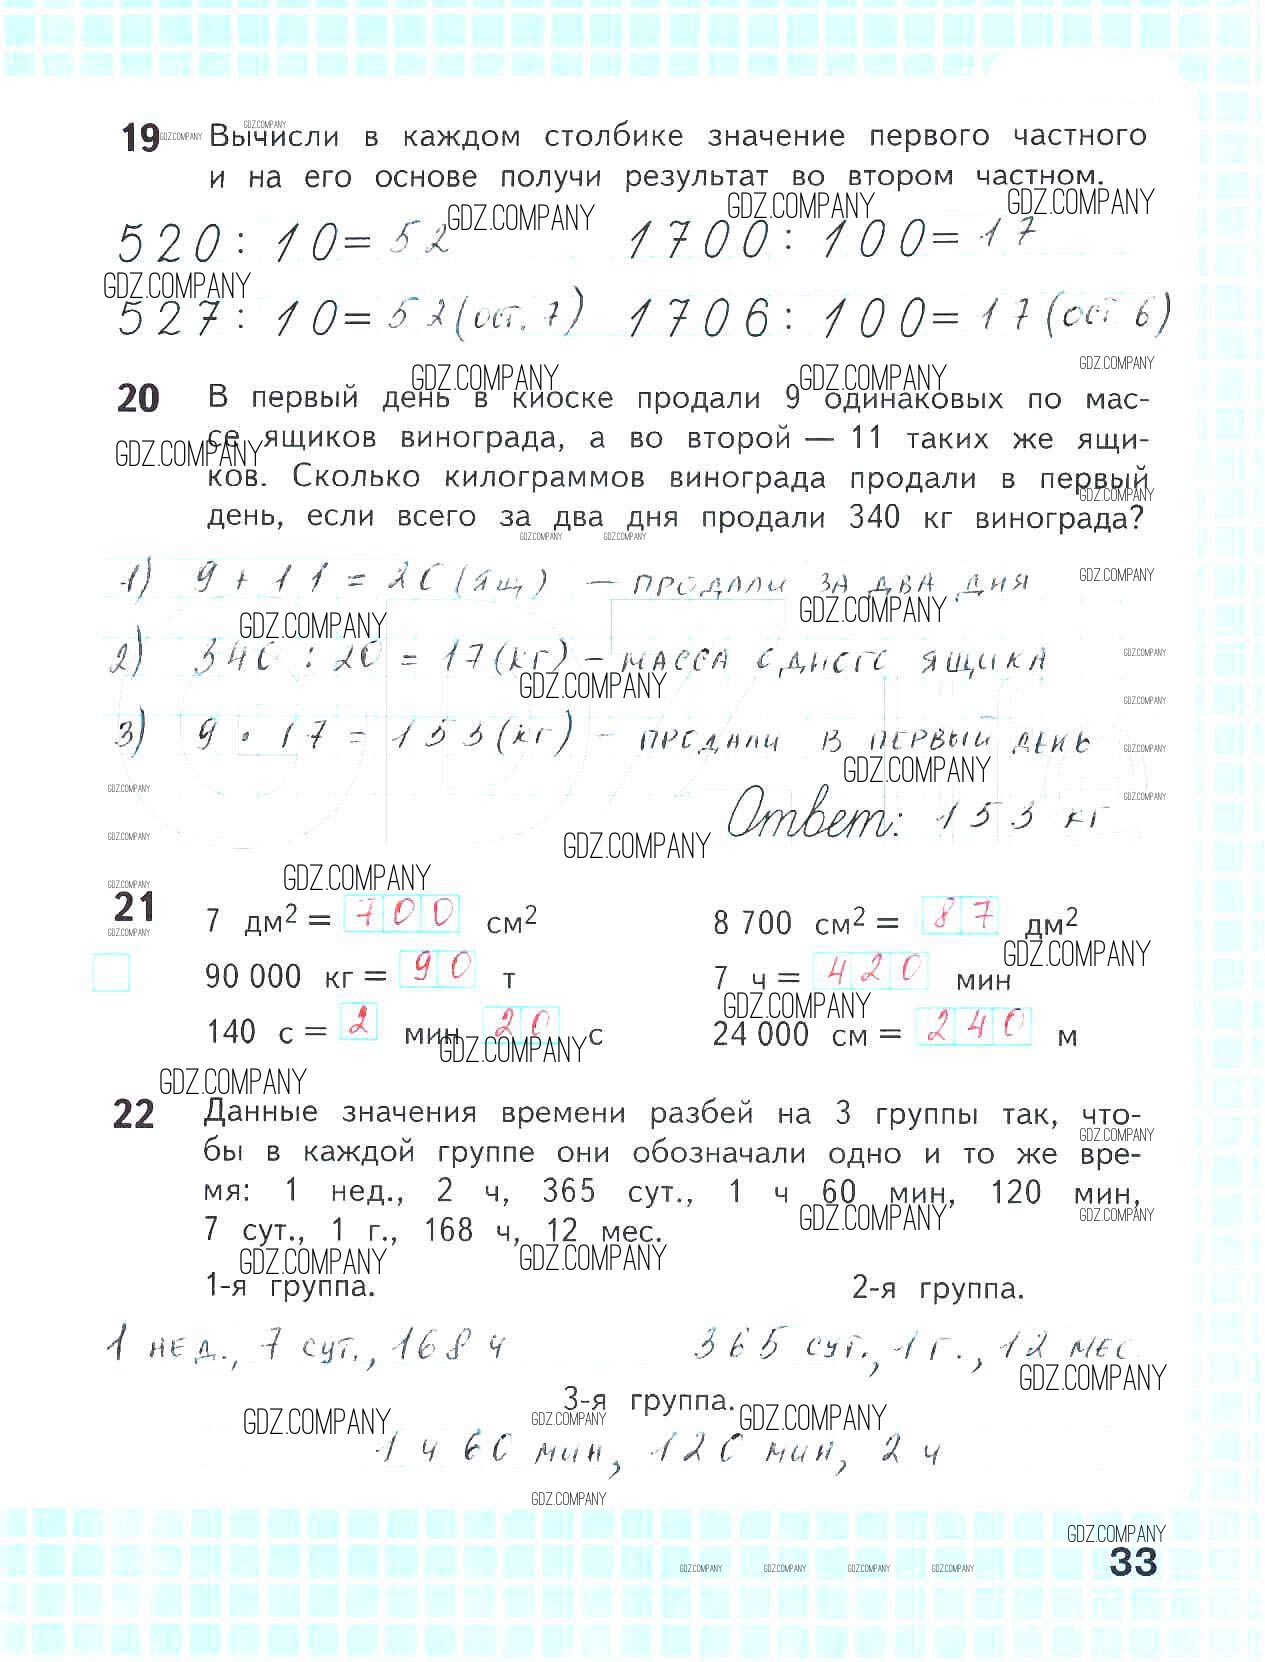 19 Вычисли в каждом столбике значение первого частного
и на его основе получи результат во втором частном.
520 : 10 = 52 1700 : 100 = 17
527 : 10 = 52 (ост. 7) 1706 : 100 = 17 (ост 6)
20 В первый день в киоске продали 9 одинаковых по мас-
се ящиков винограда, а во второй — 11 таких же ящи-
ков. Сколько килограммов винограда продали в первый
день, если всего за два дня продали 340 кг винограда?
1) 9 + 11 = 20 (ящ) — продали за два дня
2) 340 : 20 = 17 (кг) – масса одного ящика
3) 9 · 17 = 153 (кг) – продали в первый день
Ответ: 153 кг
21 7 дм² = 700 см² 8 700 см² = 87 дм²
90 000 кг = 90 т 7 ч = 420 мин
140 с = 2 мин 20 с 24 000 см = 240 м
22 Данные значения времени разбей на 3 группы так, что-
бы в каждой группе они обозначали одно и то же вре-
мя: 1 нед., 2 ч, 365 сут., 1 ч 60 мин, 120 мин,
7 сут., 1 г., 168 ч, 12 мес.
1-я группа. 2-я группа.
1 нед., 7 сут., 168 ч 365 сут., 1 г., 12 мес
3-я группа.
1 ч 60 мин, 120 мин, 2 ч
GDZ.COMPANY
33